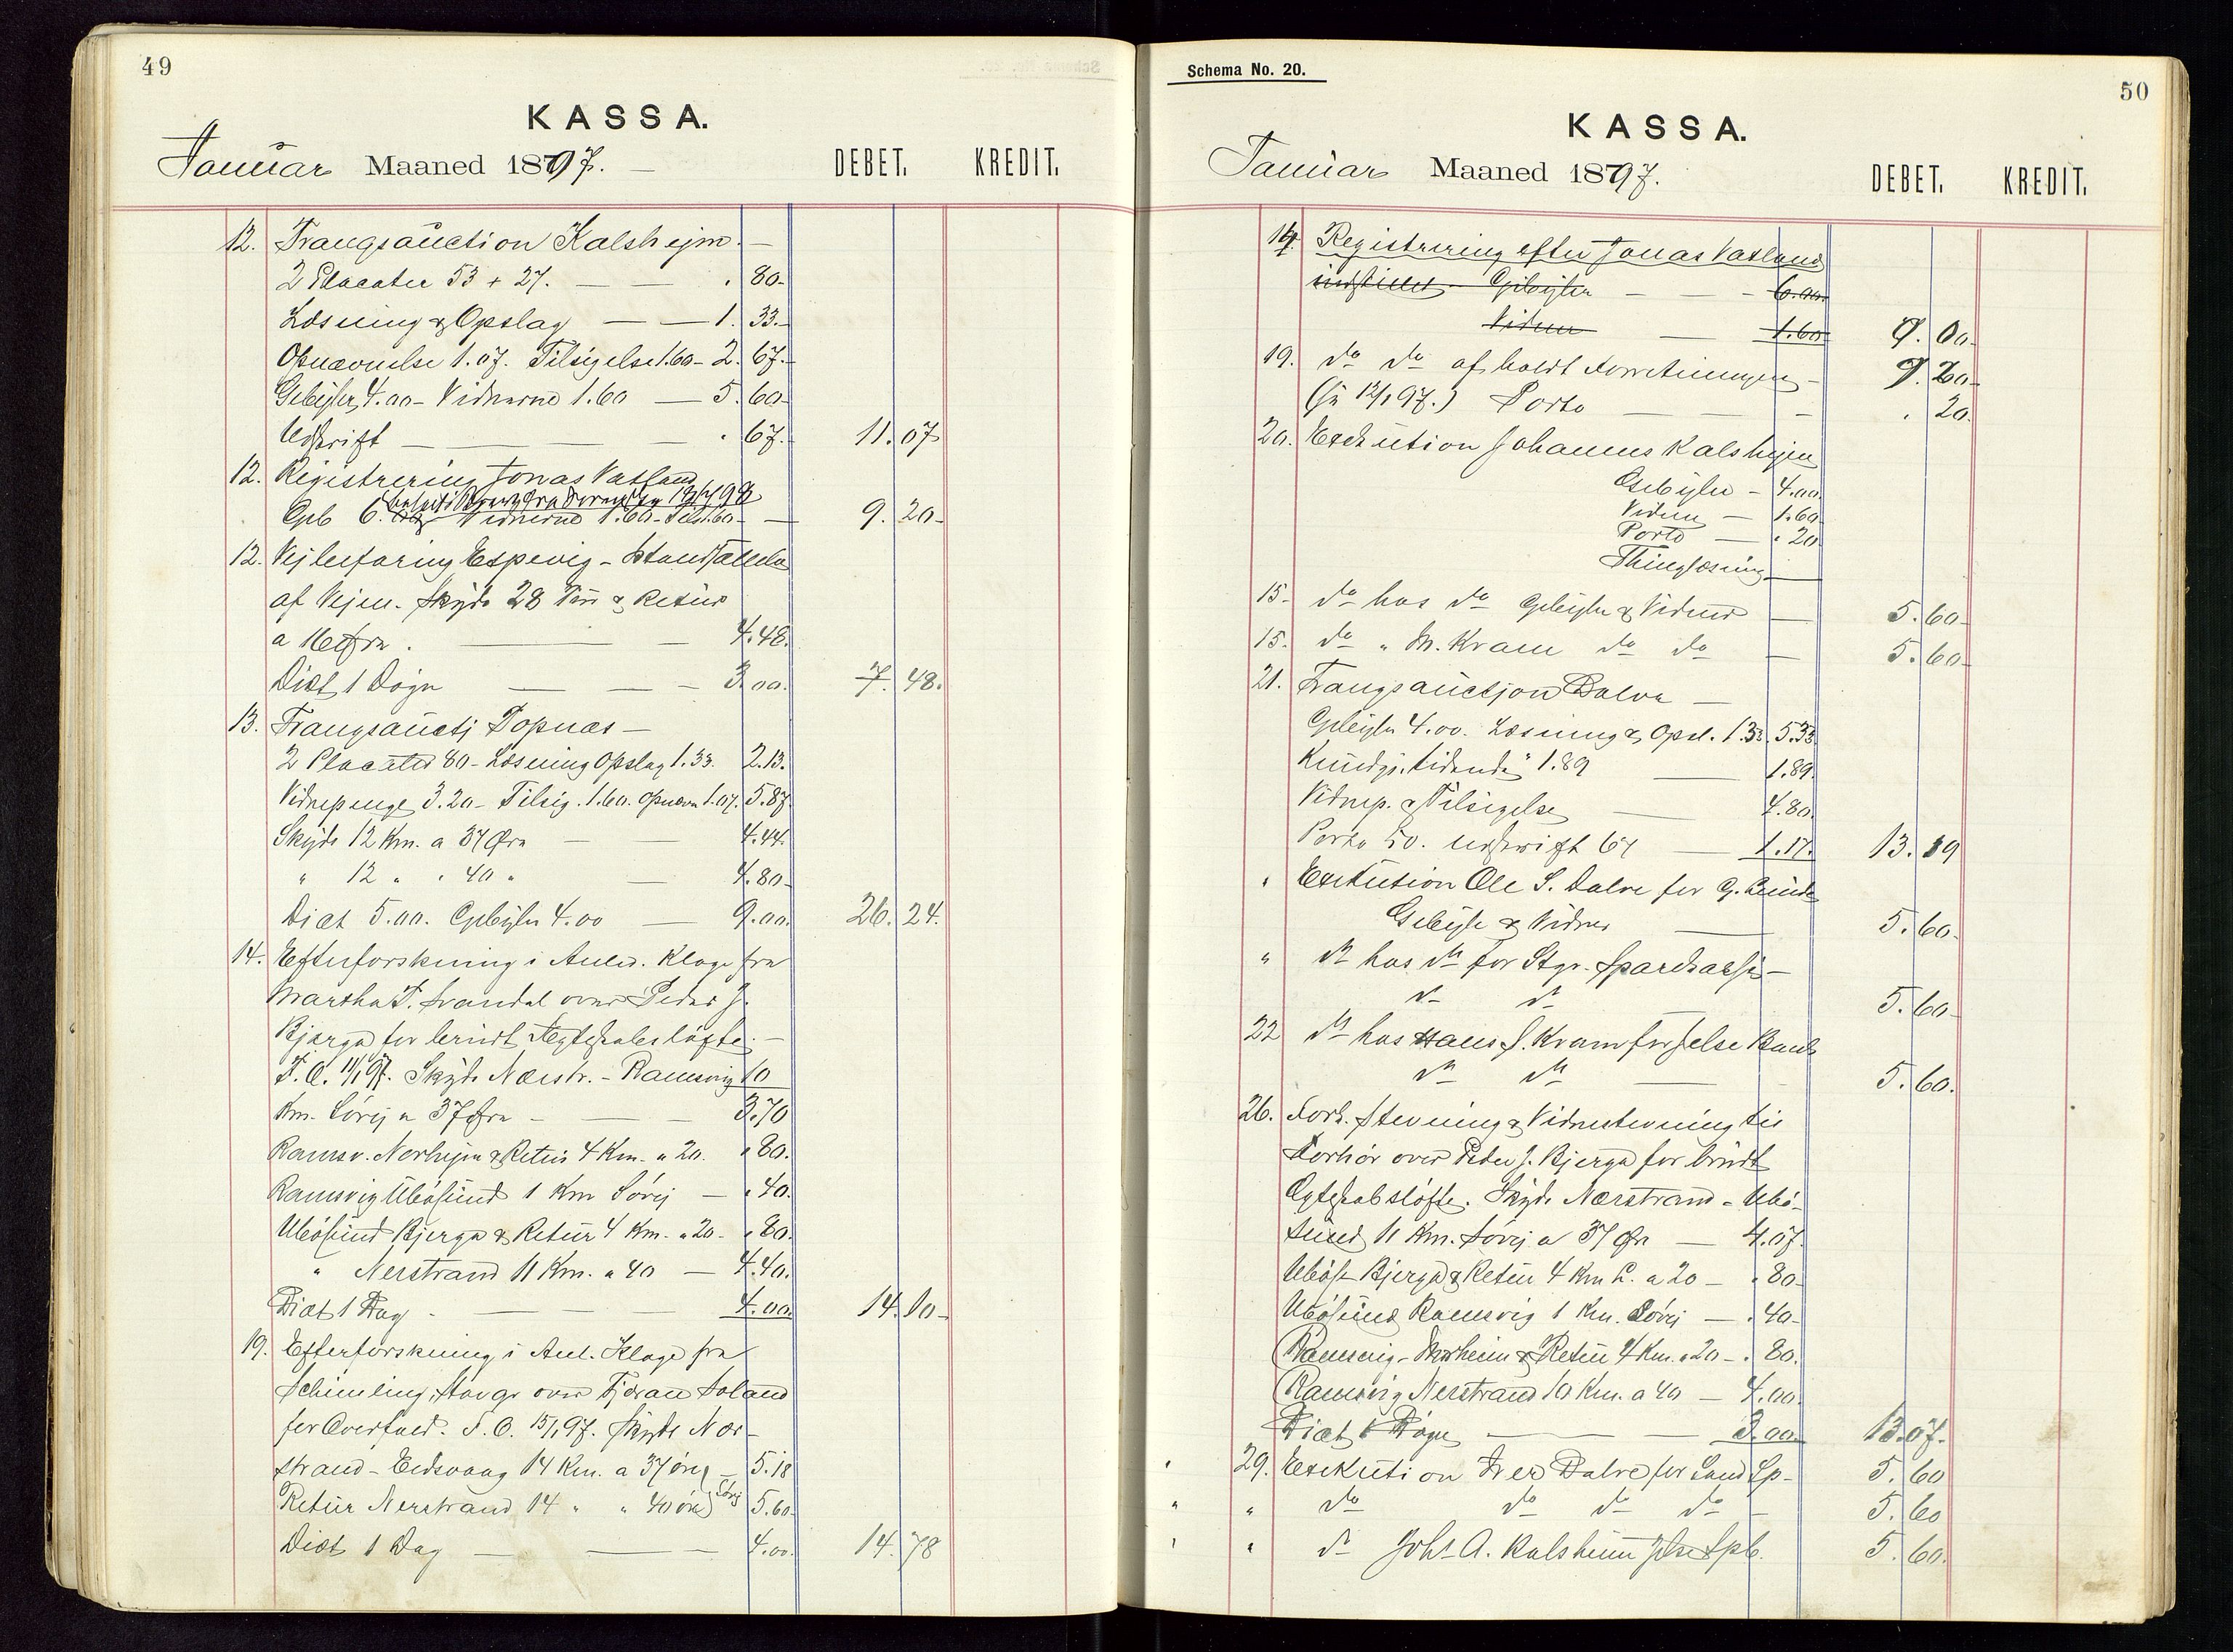 49
KASSA.
Januar Maaned 1897.
DEBET. KREDIT.
12. Tvangsauction Kalshejm. —
2 Placater 53 + 27. — — . 80.
Læsning & Opslag — — 1. 33.
Opnævnelse 1.07. Tilsigelse 1.60 — 2. 67.
Gebyhr 4.00 — Vidnerne 1.60 — 5. 60.
Udskrift — — — . 67. 11. 07
12. Registrering Jonas Vatland
Geb 6. Vidnerne 1.60 — Tils 1.60 — 9. 20
12. Vejbefaring Espevig —
af Vejen. Skyds 28 Km & Retur
a 16 Øre . — — 4.48.
Diæt 1 Døgn — — — 3.00. 7. 48.
13. Tvangsauctj Topnæs —
2 Placater 80 — Læsning Opslag 1.33. 2.13.
Vidnepenge 3.20 — Tilsig. 1.60. Opnævn 1.07. 5.87
Skyds 12 Km. a 37 Øre — — 4.44.
" 12 " " 40 " — 4.80.
Diæt 5.00. Gebyhr 4.00 — 9.00. 26. 24.
14. Efterforskning i Anled. Klage fra
Martha T. Svandal over Peder J.
Bjerga for brudt Ægteskabsløfte. —
F. O. 11/1 97. Skyds Nærstr. — Ramsvig 10
Km. Søvej a 37 Øre — — 3.70
Ramsv. Norhejm & Retur 4 Km. a 20. . 80.
Ramsvig Ubøsund 1 Km Søvej — . 40.
Ubøsund Bjerga & Retur 4 Km. a 20 — . 80.
" Nerstrand 11 Km. a 40 — 4.40.
Diæt 1 Dag — — — 4.00. 14. 10
19. Efterforskning i Anl. Klage fra
Schmeling, Stavgr over Fjøran Soland
for Overfald. F. O. 15/1 97. Skyds Nær-
strand — Eidsvaag 14 Km. a 37 øre — 5.18
Retur Nerstrand 14 " " 40 øre Søvej 5.60.
Diæt 1 Dag — — 4.00. 14. 78
Schema No. 20.
50
KASSA.
Januar Maaned 1897.
DEBET. KREDIT.
14. Registrering efter Jonas Vatland
indstillet — Gebyhr — — 6.00.
Vidner — 1.60 0. 00
19. do do afholdt Forretningen — 9. 20
(fr 12/1 97.) Porto — — . 20.
20. Exekution Johannes Kalshejm
Gebyhr — 4.00
Vidner — 1.60
Porto — . 20
Thinglæsning —
15. do hos do Gebyhr & Vidner — 5. 60
15. do " M. Kvam do do — 5. 60
21. Tvangsauctjon Dalva —
Gebyhr 4.00. Læsning & Opsl. 1.33. 5.33
Kundgj. tidende" 1.89 — 1.89.
Vidnep. & Tilsigelse — 4.80.
Porto 50. Udskrift 67 — 1.17. 13. 19
" Exekution Ole S. Dalve for G. Lunde
Gebyhr & Vidner — 5. 60.
" do hos do for Stgr. Sparekasse —
do do 5. 60
22 do hos Hans J. Kvam for Jelse Bank
do do — 5. 60.
26. Fork. Stevning & Vidnestevning til
Forhør over Peder J. Bjerga for brudt
Ægteskabsløfte. Skyds Nærstrand — Ubø-
sund 11 Km. Søvej a 37 Øre — 4.07.
Ubøs. Bjerga & Retur 4 Km L. a 20 — . 80
Ubøsund Ramsvig 1 Km. Søvej — . 40
Ramsvig — Norheim & Retur 4 Km. a 20 — . 80.
Ramsvig Nerstrand 10 Km. a 40 — 4.00.
Diæt 1 Døgn — — 3.00. 13.07.
29. Exekution Iver Dalve for Sand Sp — 5. 60
" " do do do do — 5. 60
" " do Johs A. Kalsheim Jelse Spb. 5. 60.